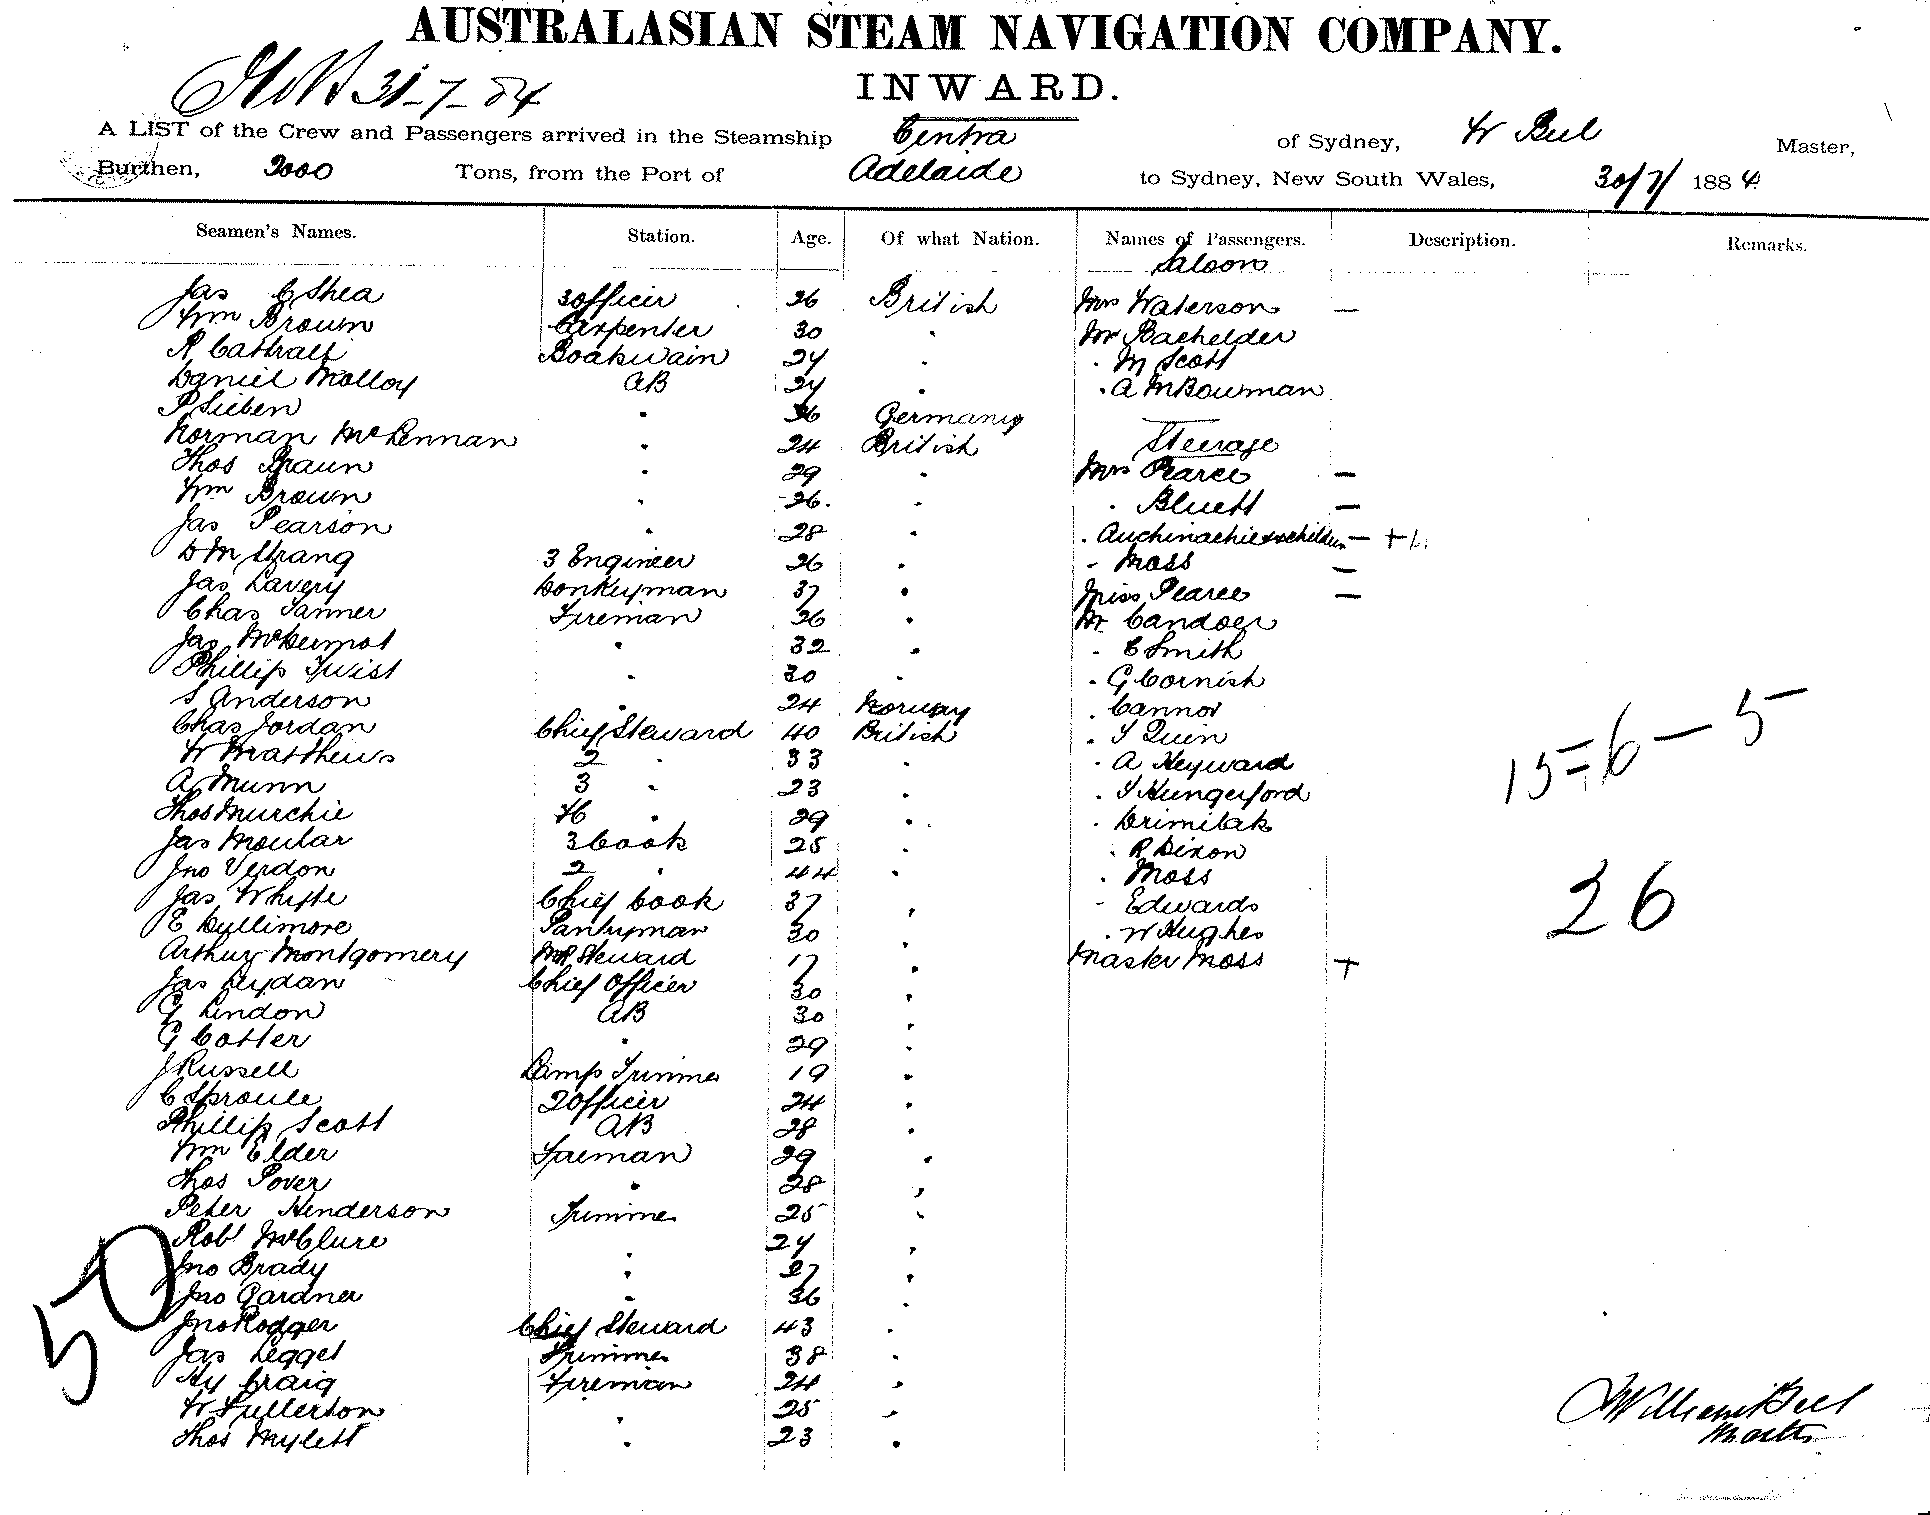 AUSTRALASIAN STEAM NAVIGATION COMPANY.
INWARD.
31-7-84
A LIST of the Crew and Passengers arrived in the Steamship Centra of Sydney, W Bell Master,
Burthen, 2000 Tons, from the Port of Adelaide to Sydney, New South Wales, 30/7/ 1884
Seamen's Names. Station. Age. Of what Nation. Names of Passengers. Description. Remarks.
Saloon
Jas O Shea 3 Officer 26 British Mrs Waterson —
Wm Brown Carpenter 30 " Mr Bachelder
R Cattrall Boatswain 24 " " M Scott
Daniel Molloy AB 24 " " A McBowman
P Sieben " 36 Germany
Norman McLennan " 24 British Steerage
Thos Braun " 29 " Mrs Pearce —
Wm Brown " 26. " " Bluett —
Jas Pearson " 28 " " Auchinachie & children — +
D M Strang 3 Engineer 26 " " Moss —
Jas Lavery Donkeyman 37 " Miss Pearce —
Chas Tanner Fireman 26 " Mr Candoer
Jas McDermot " 32 " " C Smith
Phillip Twist " 30 " " G Cornish
S Anderson " 24 Norway " Cannor
Chas Jordan Chief Steward 40 British " T Quin
W Matthews 2 " 33 " " A Heyward
A Munn 3 " 23 " " T Hungerford
Thos Murchie " 29 " "
Jas Moular 3 Cook 25 " " R Dixon
Jno Verdon 2 " 44 " " Moss
Jas Whyte Chief Cook 37 " " Edwards
E Dyllimore Pantryman 30 " " W Hughes
Arthur Montgomery MR Steward 17 " Master Moss +
Jas Lydan Chief Officer 30 "
G Lindon AB 30 "
G Cotter " 29 "
J Russell Lamp Trimmer 19 "
C Sproule 2 Officer 24 "
Phillip Scott AB 28 "
Wm Elder Fireman 29 "
Thos Pover " 28 "
Peter Henderson Trimmer 25 "
Robt McClure " 24 "
Jno Brady " 27 "
Jno Gardner " 36 "
Jno Rodger Chief Steward 43 "
Jas Legget Trimmer 38 "
Hy Craig Fireman 24 "
W Fullerton " 25 "
Thos Mylett " 23 "
15=6—5
26
50
William Bell
Master